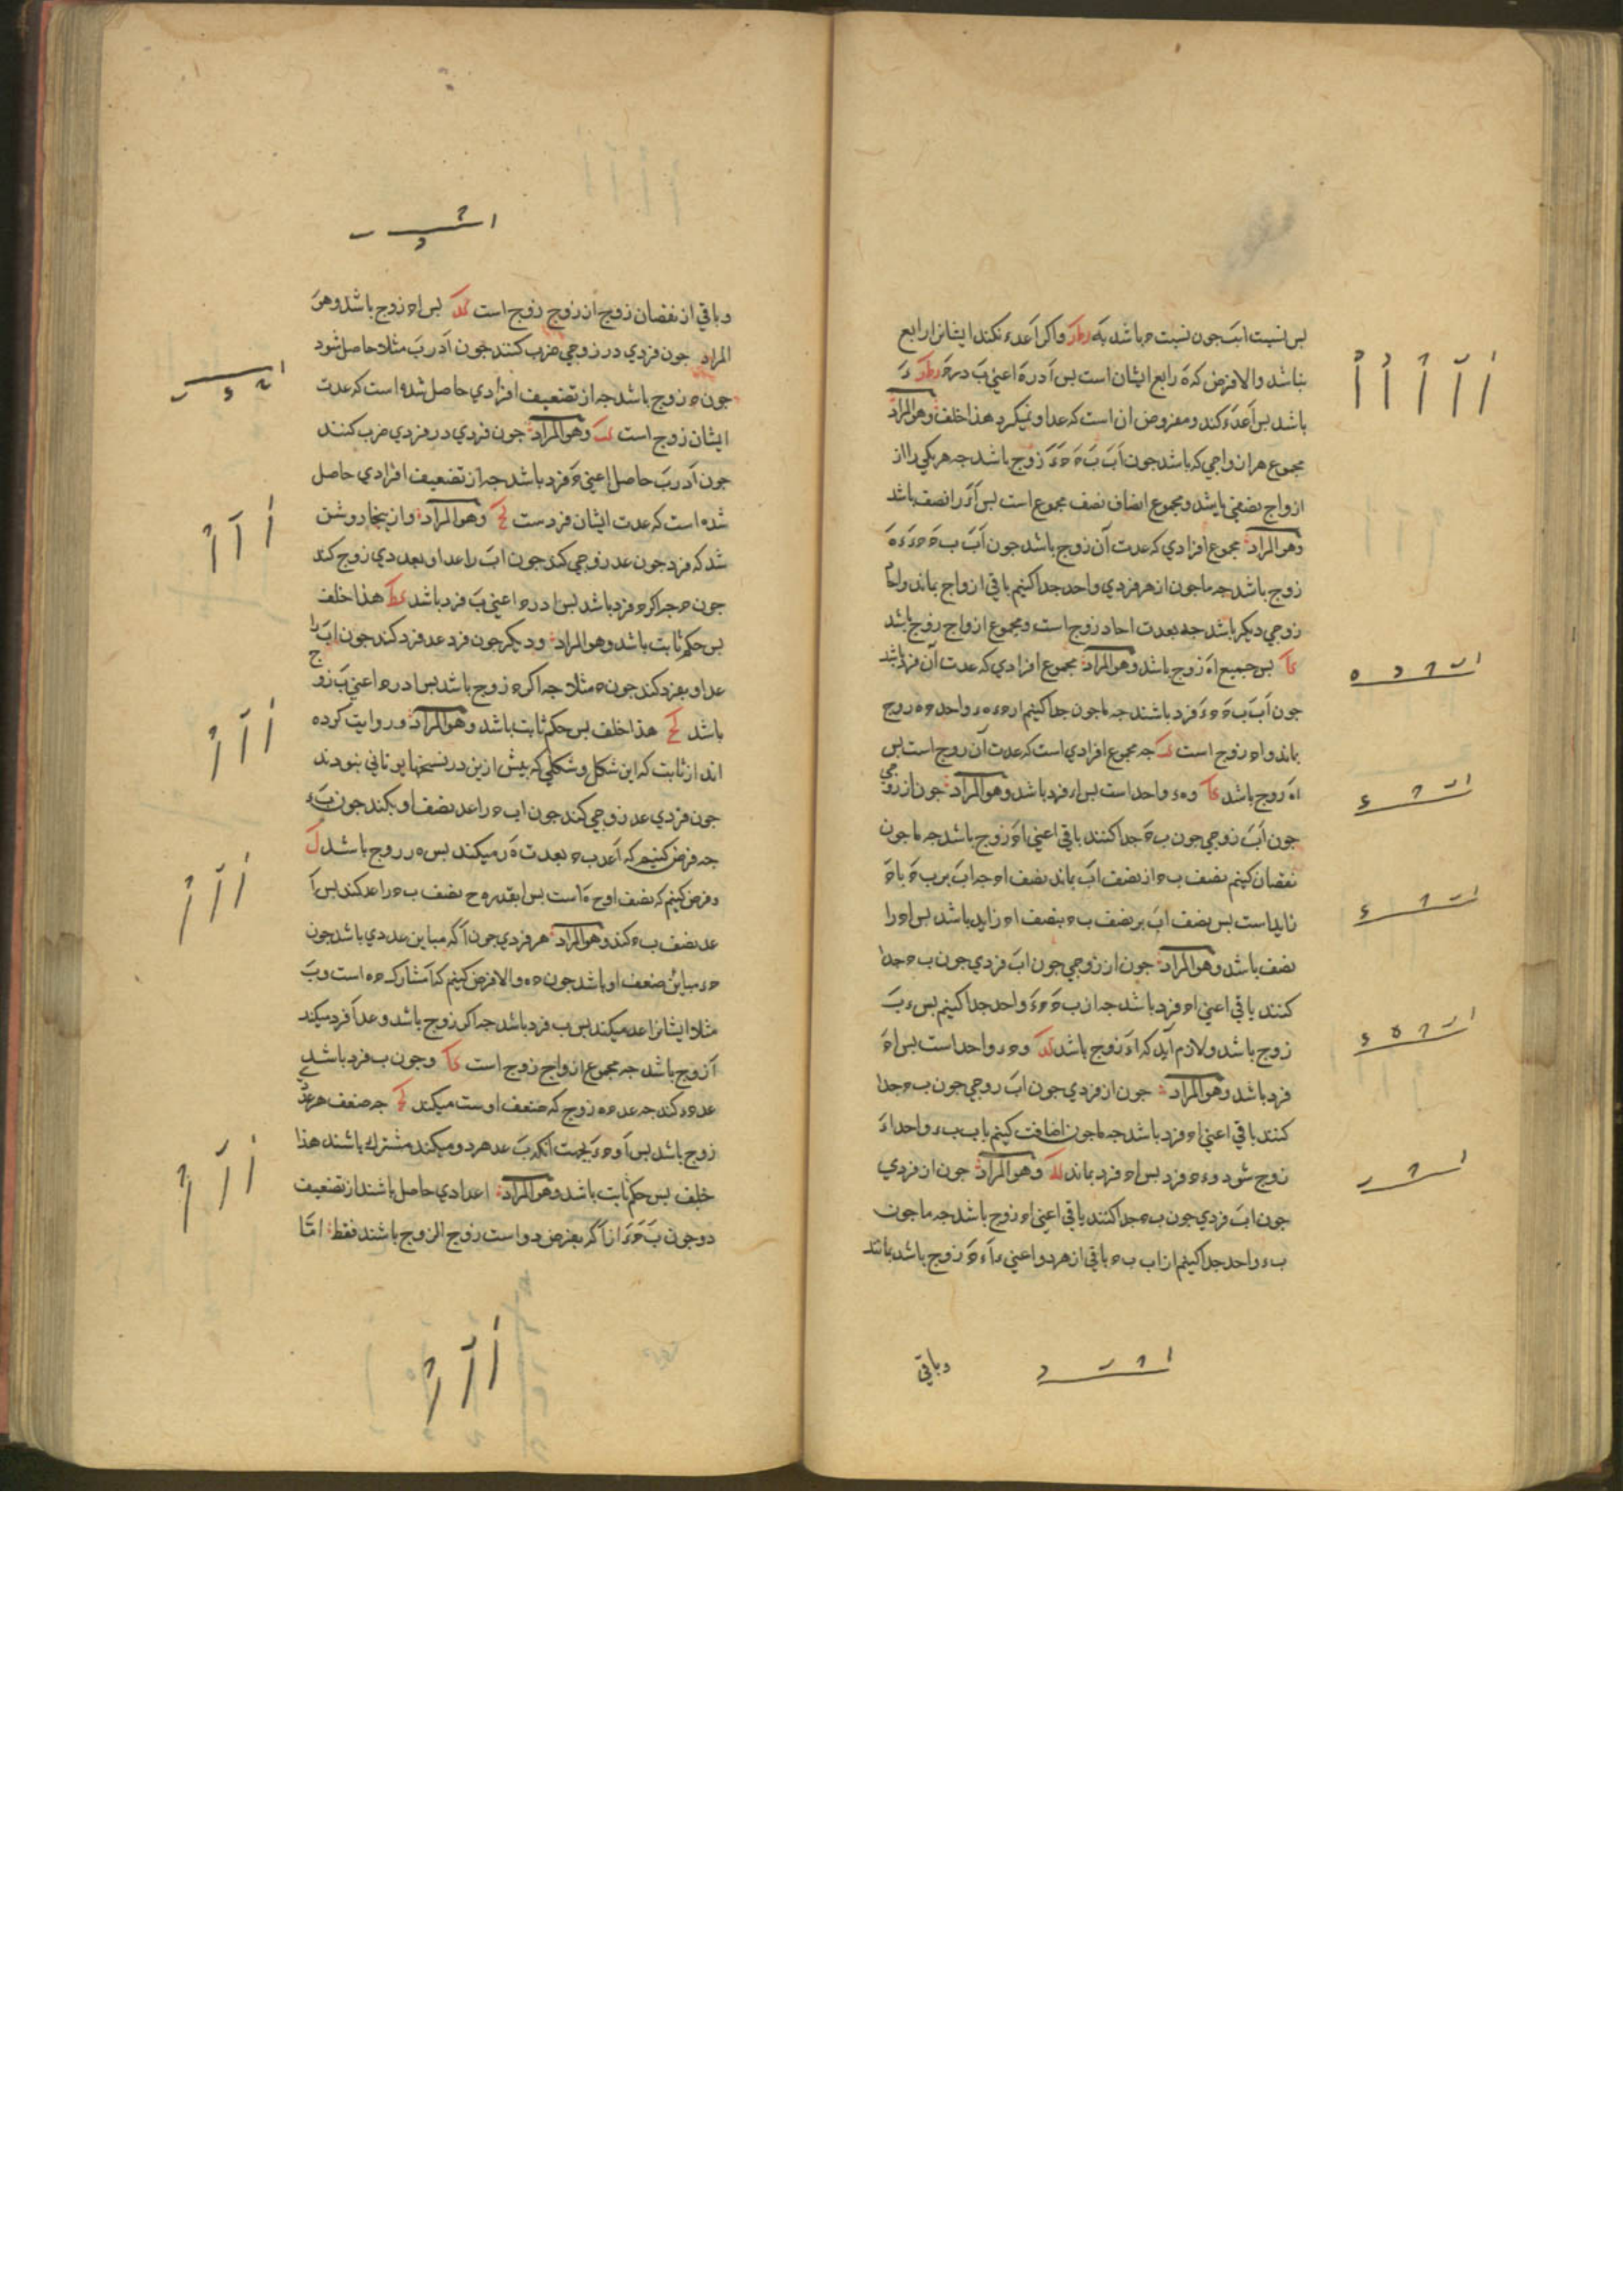 بس نسبت اب جون نسبت ه باشد به واکر اعدء نکند ایشانرا رابع
نباشد والا فرض که ه رابع ایشان است بس ا در ه اعنی ب در ه
باشد بس اعدء کند ومفروض ان است که عد او نمیکرد هذا خلف وهو المراد
مجموع هر ازواجی که باشد جون اب ب ه ه ء زوج باشد جه هر یکی را از
ازواج نصفی باشد ومجموع انصاف نصف مجموع است بس اء را نصف باشد
وهو المراد مجموع افرادی که عدت آن زوج باشد جون اب ب ه ه ء ء ه
زوج باشد جه ما جون از هر فردی واحد جدا کنیم باقی ازواج بماند واحاد
زوجی دیکر باشد جه بعدت احاد زوج است ومجموع ازواج زوج باشد
کا بس جمیع اه زوج باشد وهو المراد مجموع افرادی که عدت آن فرد باشد
جون اب ب ه ه ء فرد باشند جه ما جون جدا کنیم از ه ء ه ء واحد ه ه زوج
بماند و اه زوج است جه مجموع افرادی است که عدت آن زوج است بس
اه زوج باشد کا و ه ء واحد است بس اء فرد باشد وهو المراد جون از زوجی
جون اب زوجی جون ب ه جدا کنند باقی اعنی اه زوج باشد جه ما جون
نقصان کنیم نصف ب ه از نصف اب بماند نصف اه جه اب بر ب ه با ه
زاید است بس نصف اب بر نصف ب ه بنصف اه زاید باشد بس اه را
نصف باشد وهو المراد جون از زوجی جون اب فردی جون ب ه جدا
کنند باقی اعنی اه فرد باشد جه از ب ه ه ء واحد جدا کنیم بس ء ب
زوج باشد ولازم آید که اء زوج باشد کد و ه ء واحد است بس اه
فرد باشد وهو المراد جون از فردی جون اب زوجی جون ب ه جدا
کنند باقی اعنی اه فرد باشد جه ما جون اضافت کنیم با ب ب ء واحد اء
زوج شود و ء ه فرد بس اه فرد بماند وهو المراد جون از فردی
جون اب فردی جون ب ه جدا کنند باقی اعنی اه زوج باشد جه ما جون
ب ء واحد جدا کنیم از اب ب ه باقی از هر دو اعنی ء ا ء ه زوج باشد بمانند
وباقی
وباقی از نقصان زوج از زوج زوج است کد بس اه زوج باشد وهو
المراد جون فردی در زوجی ضرب کنند جون ا در ب مثلا حاصل شود
جون ه زوج باشد جه از تضعیف افرادی حاصل شده است که عدت
ایشان زوج است وهو المراد جون فردی در فردی ضرب کنند
جون ا در ب حاصل اعنی ه فرد باشد جه از تضعیف افرادی حاصل
شده است که عدت ایشان فردست کح وهو المراد وازینجا روشن
شد که فرد جون عد زوجی کند جون اب را عد او بعددی زوج کند
جون ه جه اکر ه فرد باشد بس ا در ه اعنی ب فرد باشد کط هذا خلف
بس حکم ثابت باشد وهو المراد ودیکر جون فرد عد فرد کند جون اب را
عد او بفرد کند جون ه مثلا جه اکر ه زوج باشد بس ا در ه اعنی ب زوج
باشد کح هذا خلف بس حکم ثابت باشد وهو المراد وروایت کرده
اند از ثابت که این شکل وشکلی که بیش ازین در نسخها یونانی نبودند
جون فردی عد زوجی کند جون اب ه را عد نصف او بکند جون ب ء
جه فرض کنیم که ا عد ب ه بعدت ه ز میکند بس ه ز زوج باشد ل
وفرض کنیم که نصف او ح ه است بس ا بقدر ه ح نصف ب ه را عد کند بس ا
عد نصف ب ه کند وهو المراد هر فردی جون ا که مباین عددی باشد جون
ه ء مباین ضعف او باشد جون ه ه والا فرض کنیم که ا مشارک ه ه است و ب
مثلا ایشانرا عد میکند بس ب فرد باشد جه اکر زوج باشد وعد ا فرد میکند
ا زوج باشد جه مجموع ازواج زوج است کا وجون ب فرد باشد بس
عد ه ء کند جه عد ه ه زوج که ضعف اوست میکند جه ضعف هر عدد
زوج باشد بس ا و ه ء بجهت آنکه ب عد هر دو میکند مشترک باشند هذا
خلف بس حکم ثابت باشد وهو المراد اعدادی حاصل باشند از تضعیف
دو جون ب ه ء از ا که بفرض دو است زوج الزوج باشند فقط اما